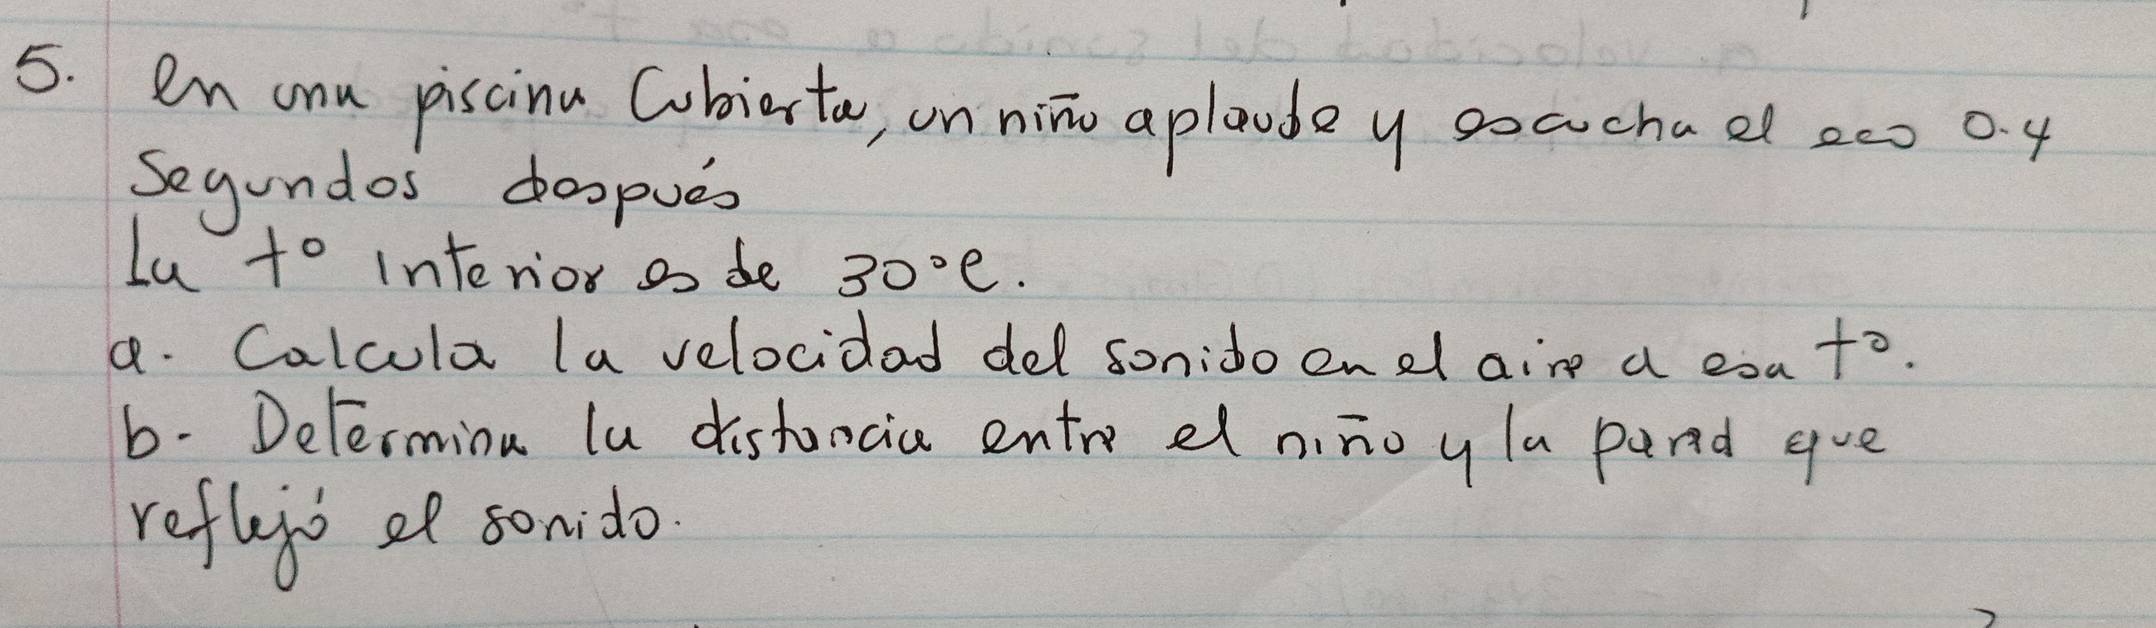 5. en una piscina Cubierta, un niño aplaude y escucha el eco 0.4
Segundos después
La t° interior es de 30°C.
a. Calcula la velocidad del sonido en el aire a esa t°.
b. Determina la distancia entre el niño y la pared que
reflejó el sonido.